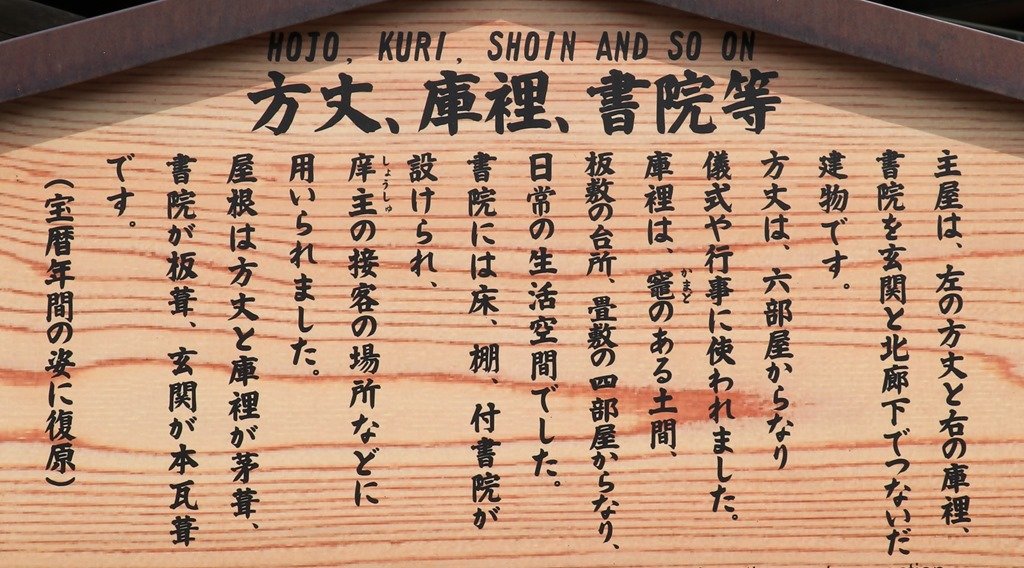 HOJO, KURI, SHOIN AND SO ON
方丈、庫裡、書院等
主屋は、左の方丈と右の庫裡、
書院を玄関と北廊下でつないだ
建物です。
方丈は、六部屋からなり
儀式や行事に使われました。
庫裡は、竈のある土間、
かまど
板敷の台所、畳敷の四部屋からなり、
日常の生活空間でした。
書院には床、棚、付書院が
設けられ、
庠主の接客の場所などに
しょうしゅ
用いられました。
屋根は方丈と庫裡が茅葺、
書院が板葺、玄関が本瓦葺
です。
（宝暦年間の姿に復原）